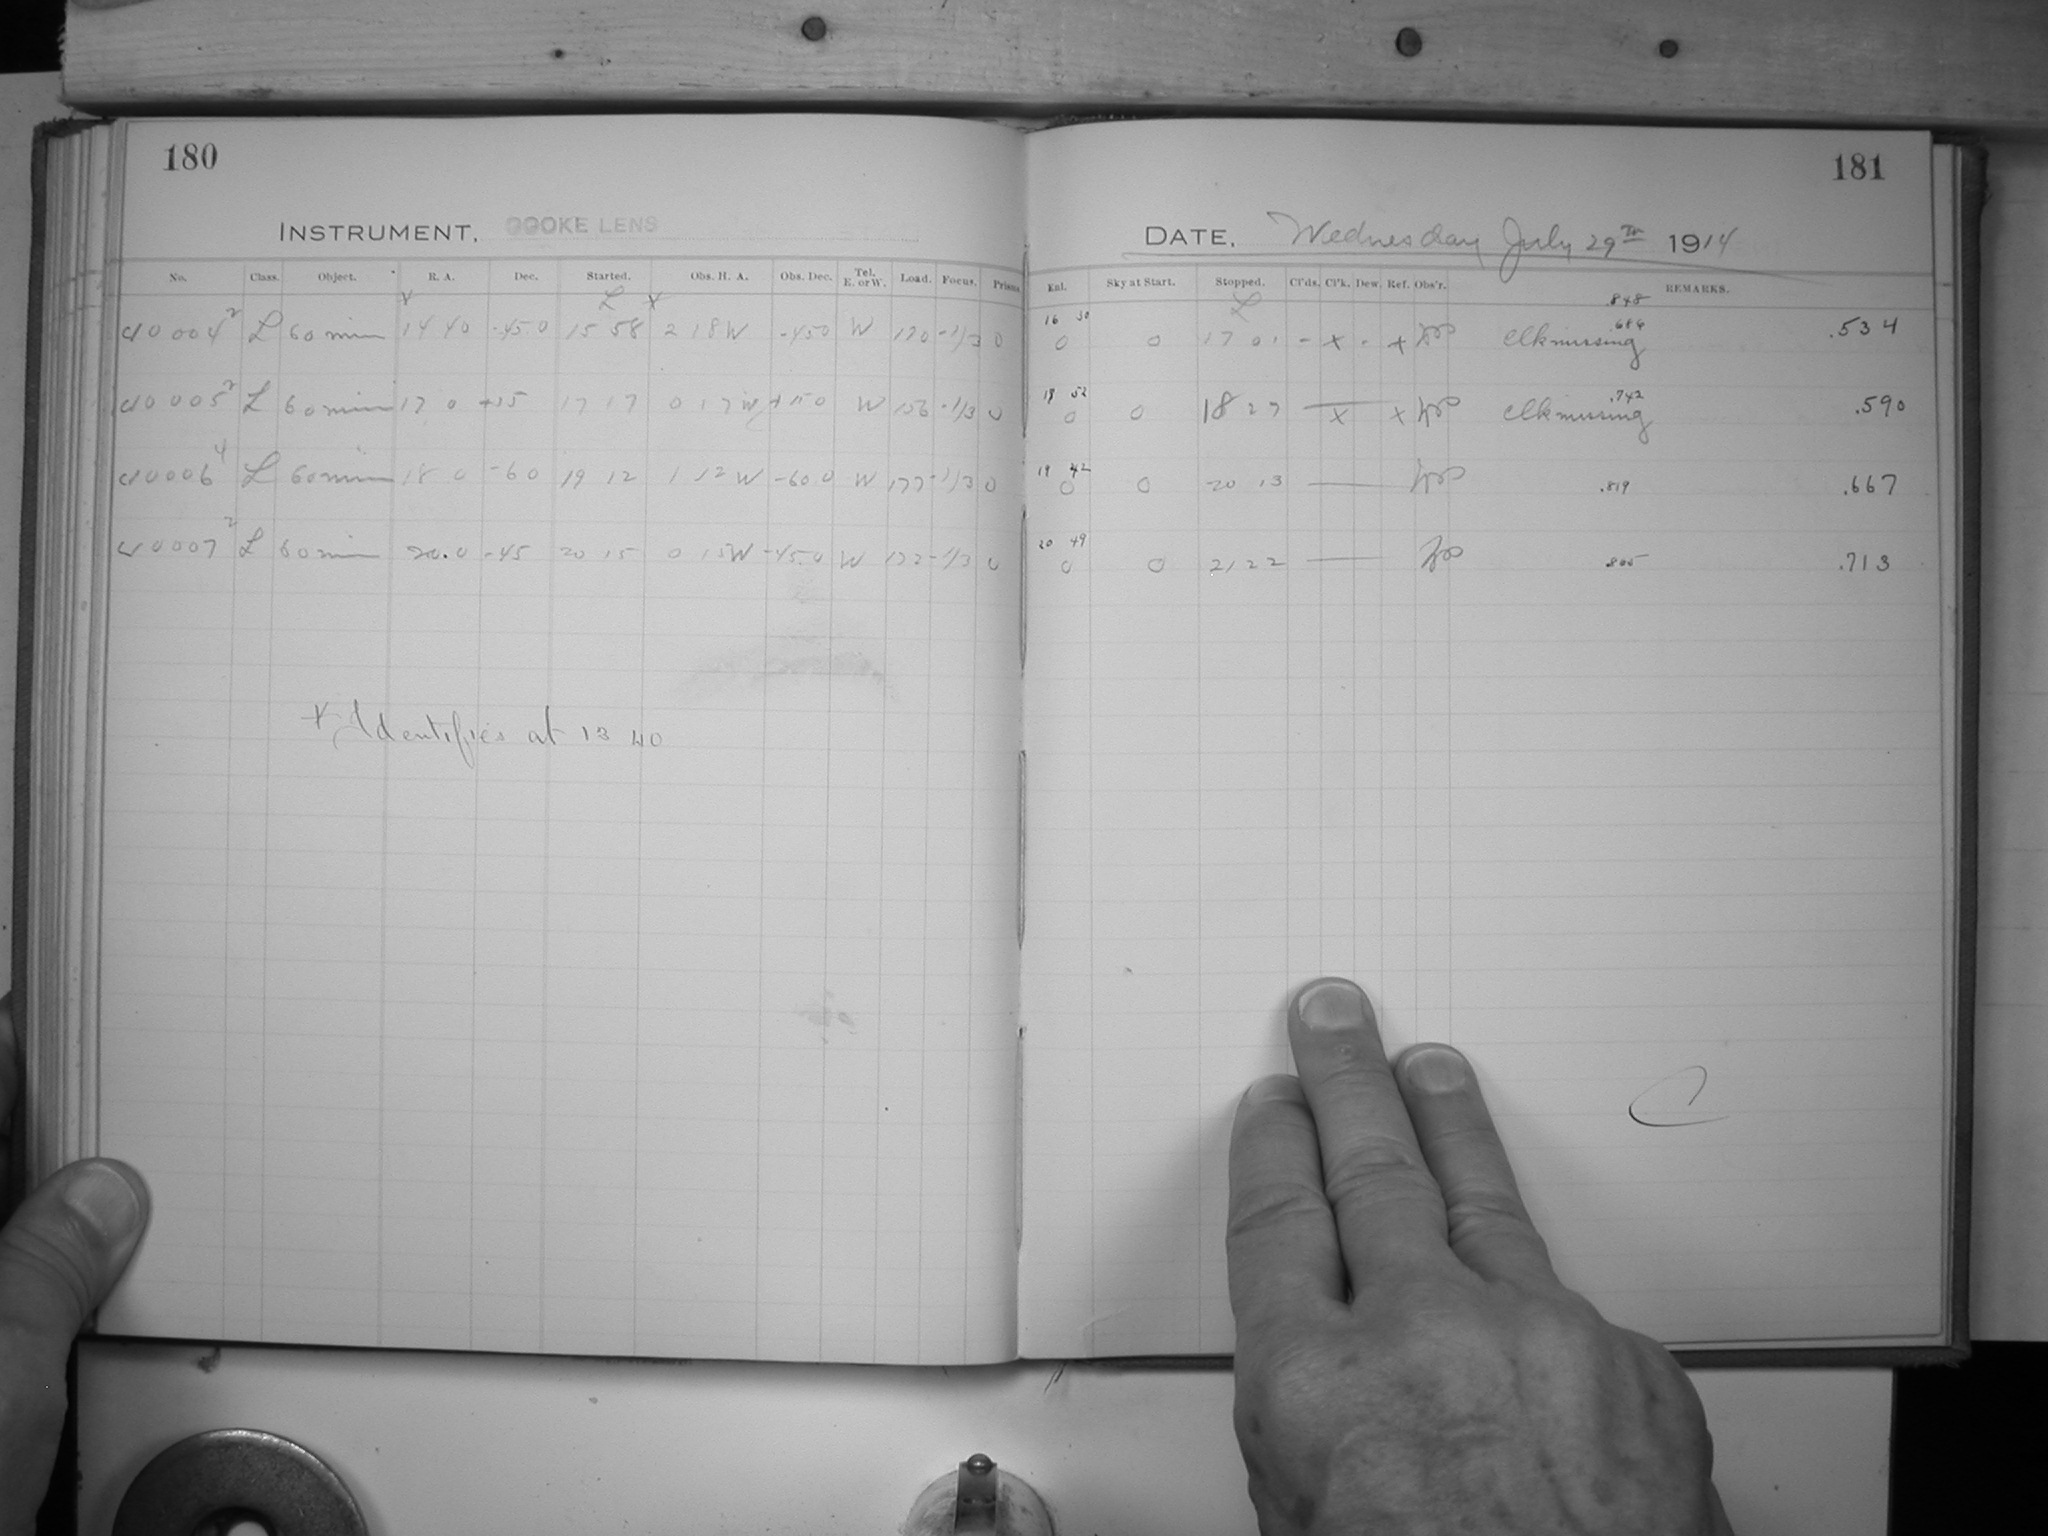 180
INSTRUMENT, COOKE LENS
No. Class. Object. R. A. Dec. Started. Obs. H. A. Obs. Dec. Tel. E. or W. Load. Focus. Prisms
x L x
10004 2 L 60 min 14 40 -45.0 15 58 2 18 W -45.0 W 170 -1/3 0
10005 2 L 60 min 17 0 +15 17 17 0 17 W +15.0 W 156 -1/3 0
10006 4 L 60 min 18 0 -60 19 12 1 12 W -60.0 W 177 -1/3 0
10007 2 L 60 min 20.0 -45 20 15 0 15 W -45.0 W 172 -1/3 0
x Identifies at 13 40
181
DATE, Wednesday July 29th 1914
Exl. Sky at Start. Stopped. Cl'ds. Cl'k. Dew. Ref. Obs'r. REMARKS.
L .848
16 30 .686
0 0 17 01 - x - x Clk missing .534
18 52 .742
0 0 18 27 x x Clk missing .590
19 42
0 0 20 13 .819 .667
20 49
0 0 21 22 .865 .713
C